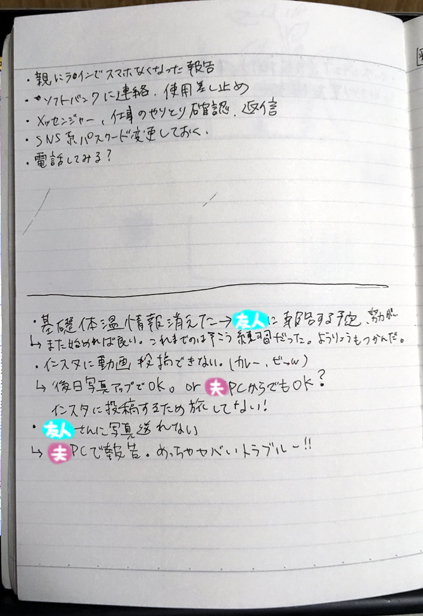 ・親にラインでスマホなくなった報告
・ソフトバンクに連絡、使用差し止め
・メッセンジャー、仕事のやりとり確認、返信
・SNS系パスワード変更しておく、
・電話してみる?
・基礎体温情報消えたー→友人に報告する予定、
↳また始めれば良い。これまでのは予こう練習だった。ようりょうもつかんだ。
・インスタに動画投稿できない。(カレー、ピーw)
↳後日写真アップでOK。or 夫PCからでもOK?
インスタに投稿するため旅してない!
・友人さんに写真送れない
↳夫PCで報告。めっちゃヤバいトラブルー!!